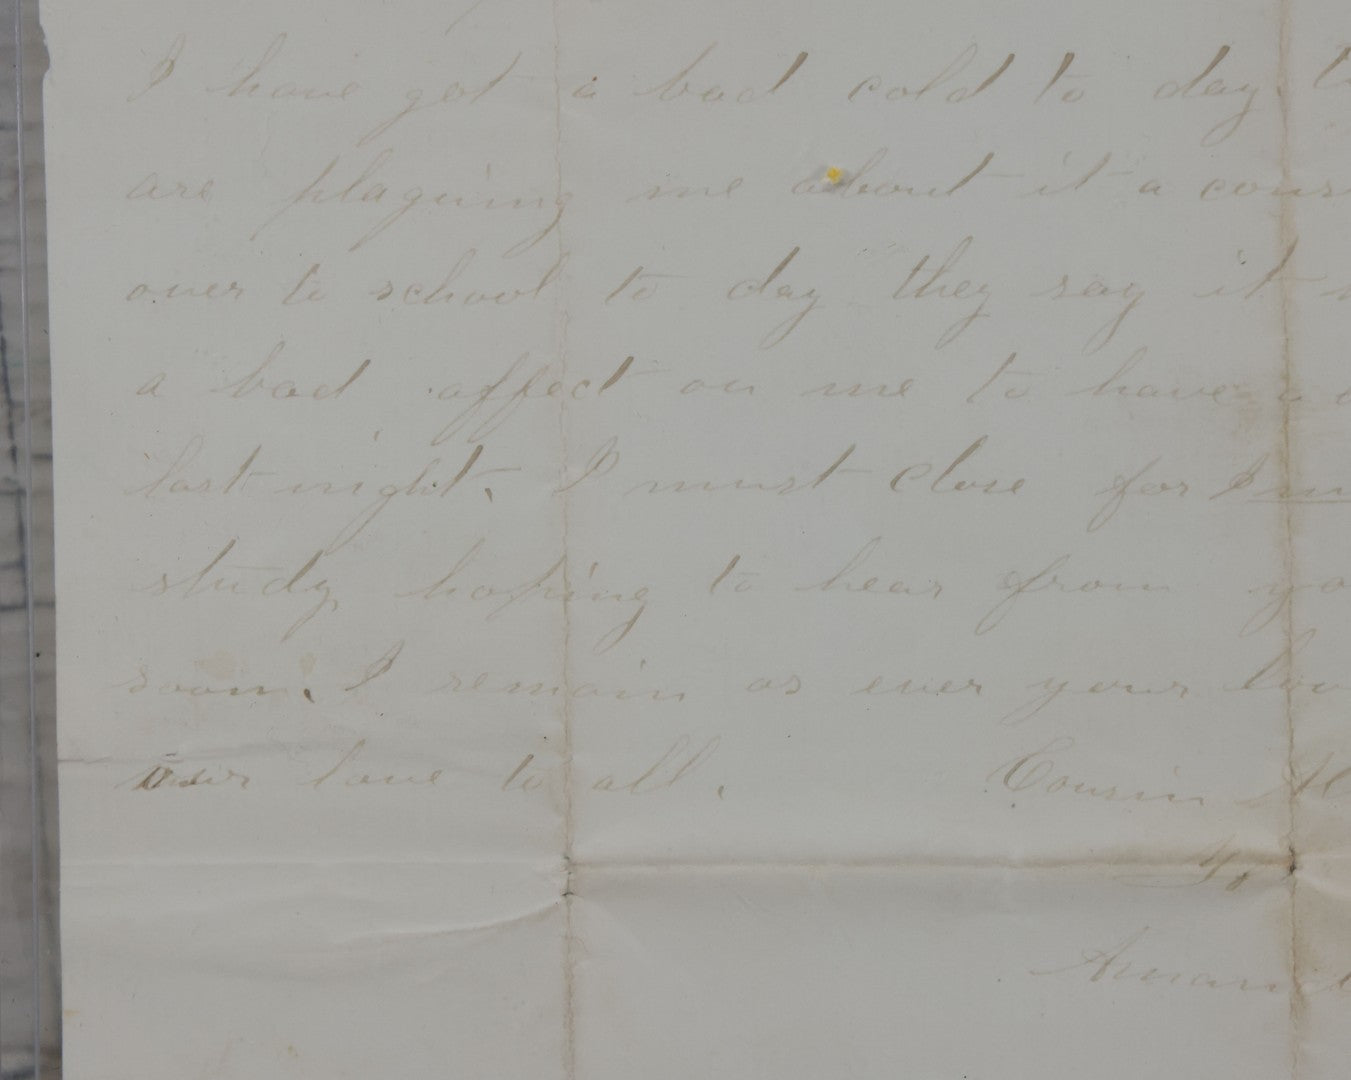 I have got a bad cold to day. t
are plaguing me about it a cous
over to school to day they say it
a bad affect on me to have a
last night. I must close for I m
study, hoping to hear from yo
soon. I remain as ever your lov
our love to all. Cousin
To
Amand